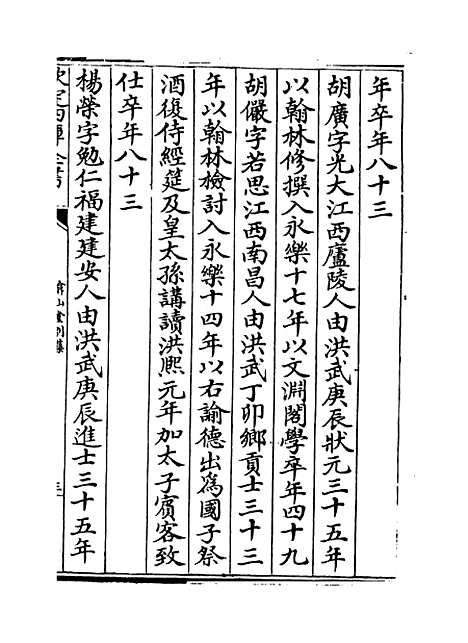 年卒年八十三
胡廣字光大江西廬陵人由洪武庚辰狀元三十五年
以翰林修撰入永樂十七年以文淵閣學卒年四十九
胡儼字若思江西南昌人由洪武丁卯鄉貢士三十三
年以翰林檢討入永樂十四年以右諭德出爲國子祭
酒復侍經筵及皇太孫講讀洪熙元年加太子賓客致
仕卒年八十三
楊榮字勉仁福建建安人由洪武庚辰進士三十五年
欽定四庫全書
弇山堂別集
三